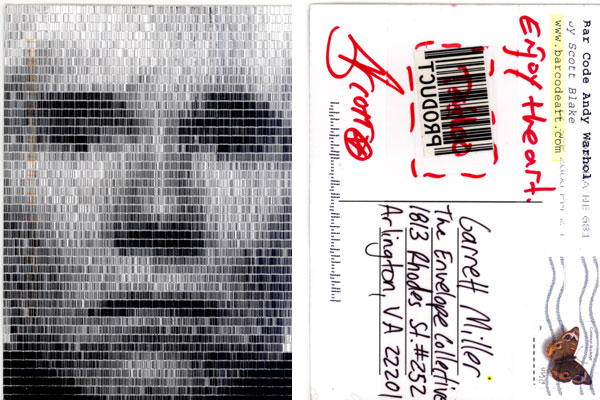 Bar Code Andy Warhol
by Scott Blake
www.barcodeart.com
NE 681
Enjoy the art.
PRODUCT
Scott
Garrett Miller
The Envelope Collective
1813 Rhodes St. #252
Arlington, VA 22201